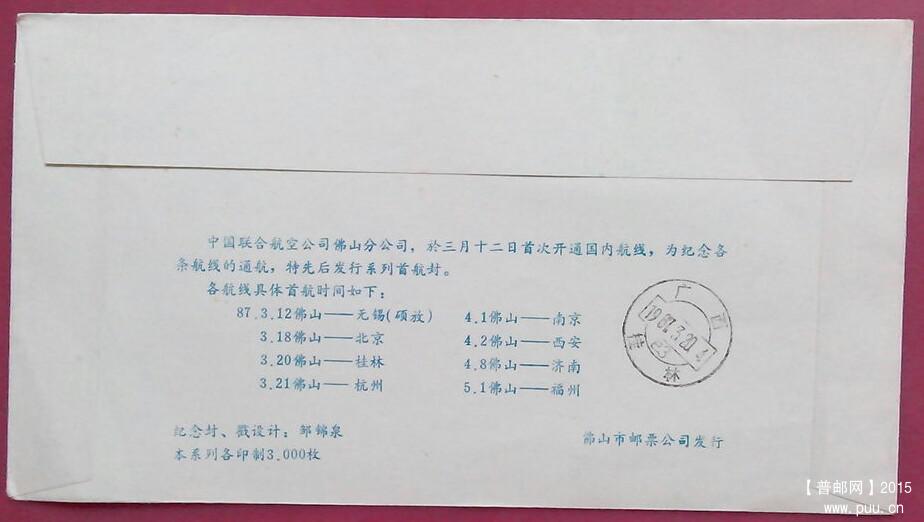 中国联合航空公司佛山分公司，於三月十二日首次开通国内航线，为纪念各
条航线的通航，特先后发行系列首航封。
各航线具体首航时间如下：
87.3.12佛山——无锡(硕放) 4.1佛山——南京
3.18佛山——北京 4.2佛山——西安
3.20佛山——桂林 4.8佛山——济南
3.21佛山——杭州 5.1佛山——福州
广西
1987.3.20
桂林
纪念封、戳设计：邹锦泉
本系列各印制3,000枚
佛山市邮票公司发行
【普邮网】2015
www.puu.cn